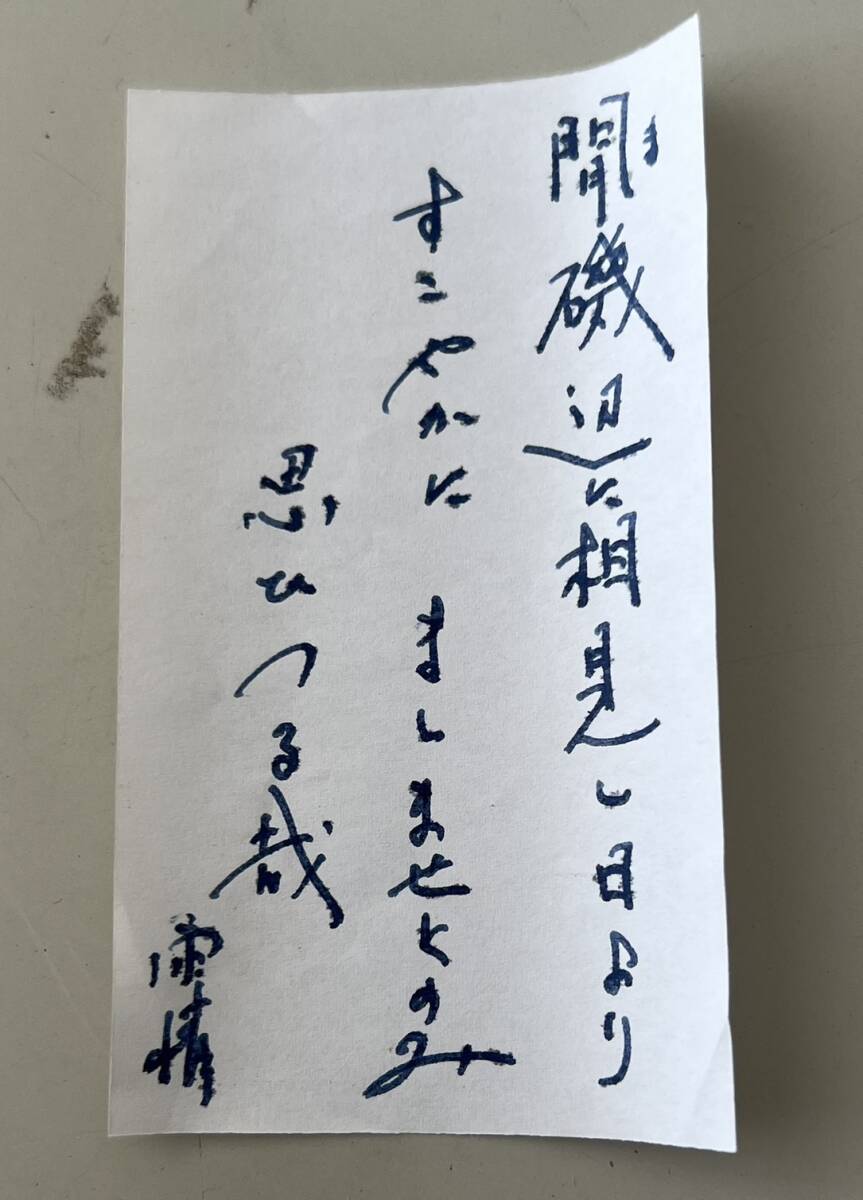 聞ま磯辺に相見し日より
すこやかに ましませとのみ
思ひつる哉
雨情